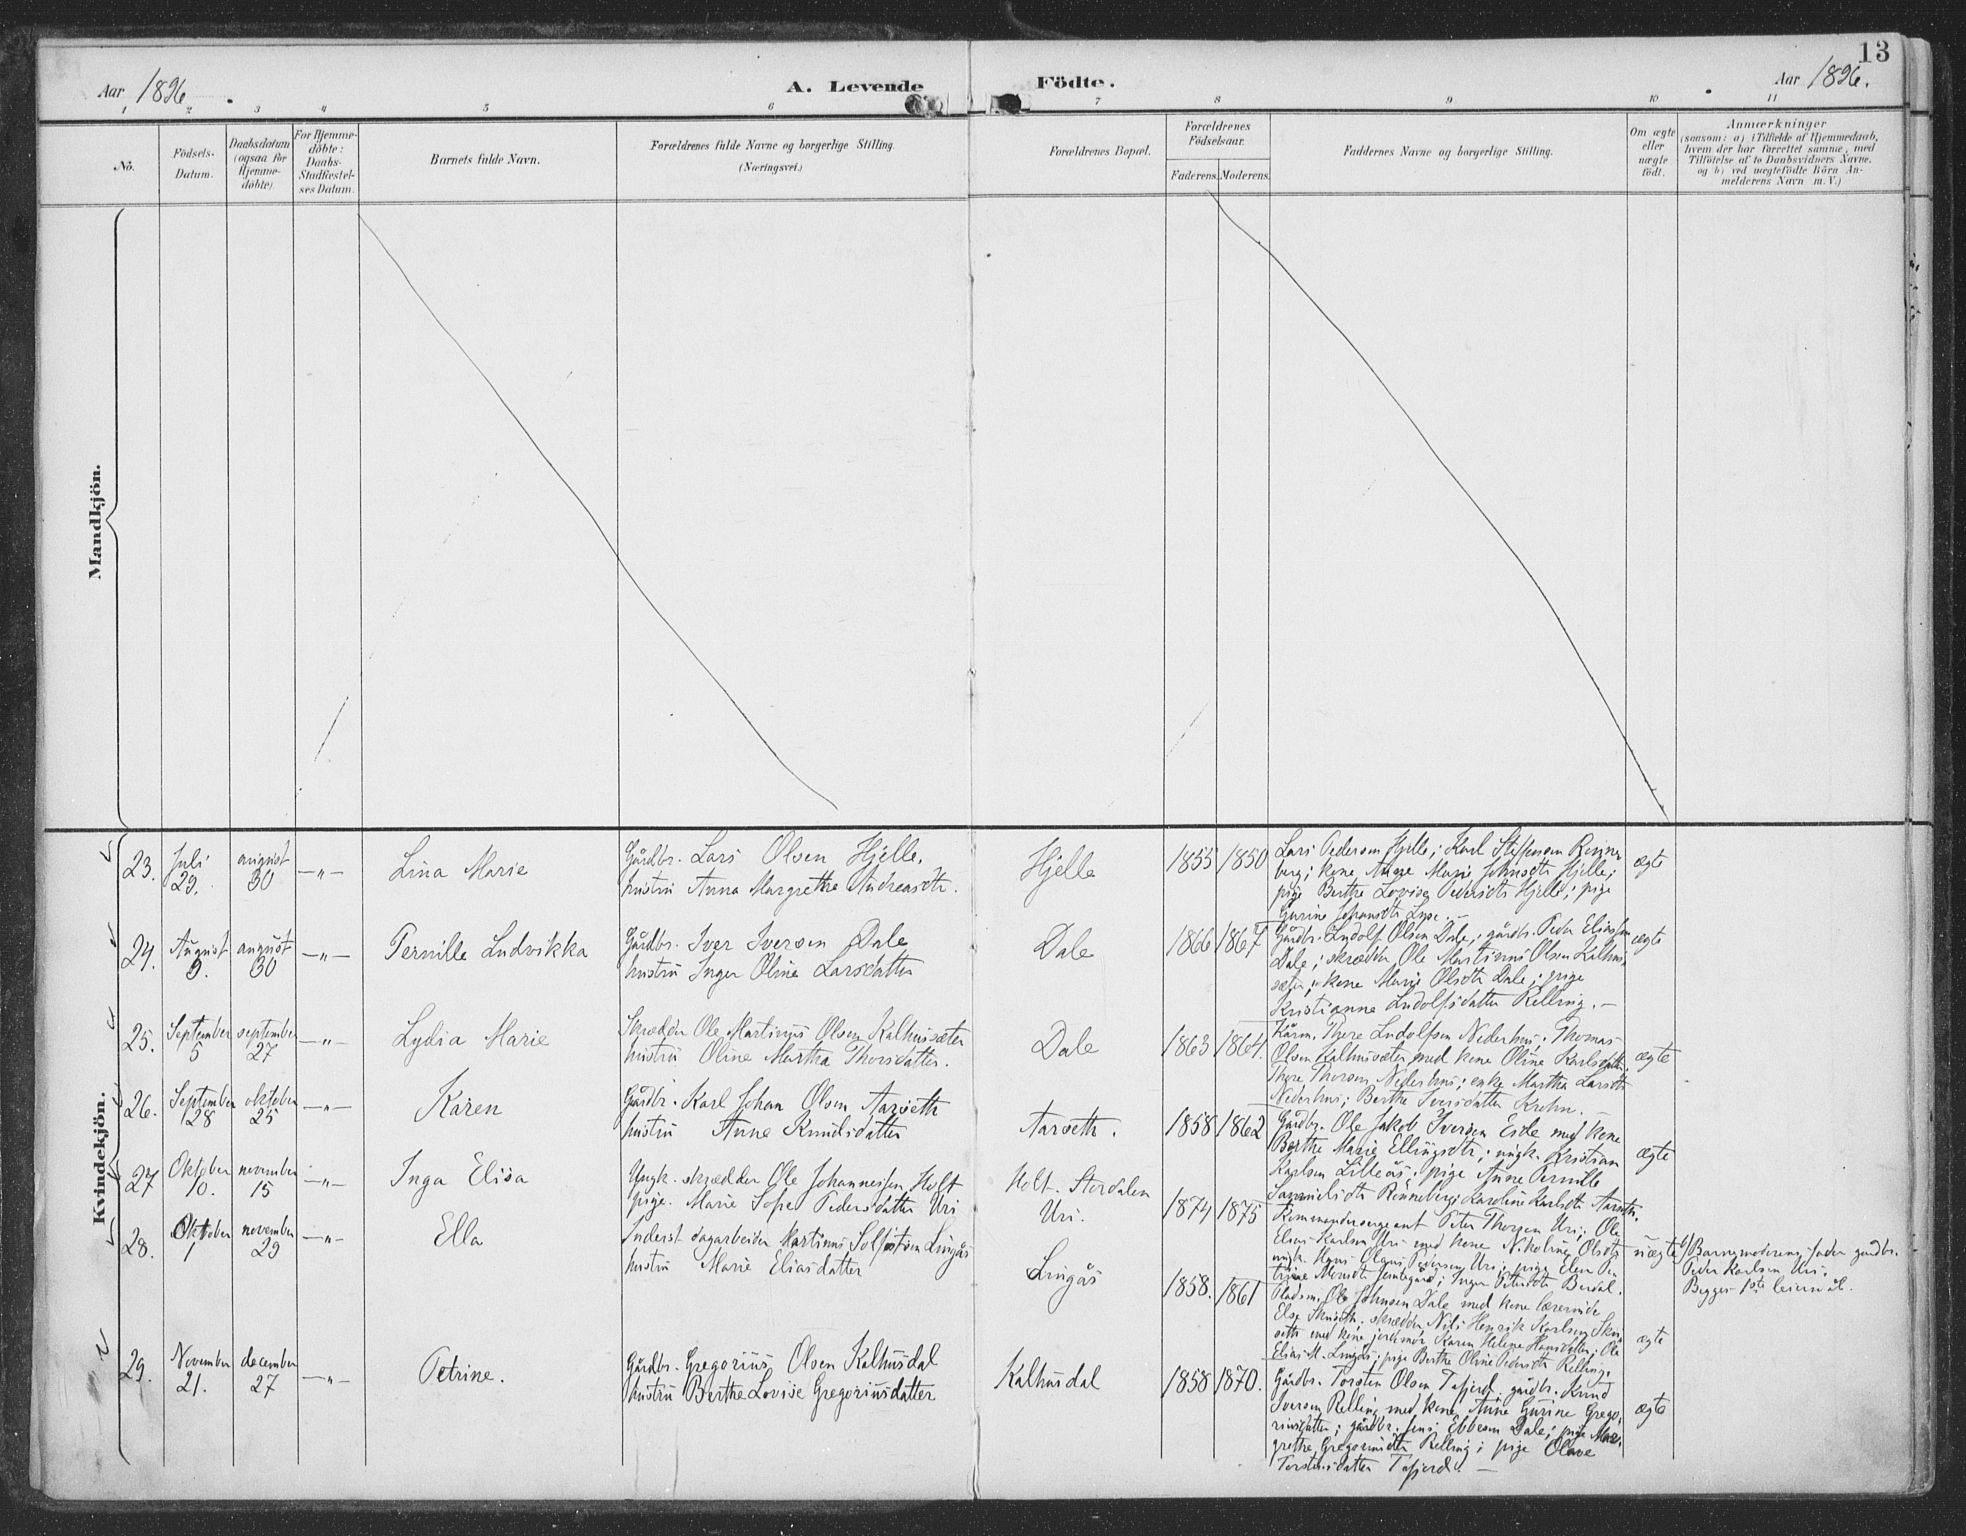 13
Aar 1896.
A. Levende
Födte.
Aar 1896.
1 2 3 4 5 6 7 8 9 10 11
No.
Födsels-
Datum.
Daabsdatum
(ogsaa for
Hjemme-
döbte)
For Hjemme-
döbte:
Daabs-
Stadfæstel-
ses Datum.
Barnets fulde Navn.
Forældrenes fulde Navne og borgerlige Stilling.
(Næringsvei.)
Forældrenes Bopæl.
Forældrenes
Födselsaar.
Faderens. Moderens.
Faddernes Navne og borgerlige Stilling.
Om ægte
eller
uægte
födt.
Anmærkninger
(saasom: a) i Tilfælde af Hjemmedaab,
hvem der har forrettet samme, med
Tilföielse af to Daabsvidners Navne.
og b) ved uægtefödte Börn An-
melderens Navn m. V.)
Mandkjön.
Kvindekjön.
23.
Juli
29.
august
30
—„—
Lina Marie
Gårdbr. Lars Olsen Hjelle,
hustru Anna Margrethe Andreasdtr.
Hjelle
1855 1850
Lars Pedersen Hjelle; Karl Steffensen Rønne-
berg; kone Anne Marie Johnsdtr Hjelle;
pige Berthe Lovise Pedersdtr Hjelle; pige
Gurine Johansdtr Lyse. —
ægte
24.
August
9.
august
30
—„—
Pernille Ludvikka
Gårdbr. Iver Iversen Dale
hustru Inger Oline Larsdatter
Dale
1866 1867
Gårdbr. Ludolf Olsen Dale; gårdbr. Peder Eliassen
Dale; skrædder Ole Martinus Olsen Kalhus-
sæter; kone Marie Olsdtr Dale; pige
Kristianne Ludolfsdatter Relling. —
ægte
25.
September
5
september
27
—„—
Lydia Marie
Skrædder Ole Martinus Olsen Kalhussæter
hustru Oline Martha Thorsdatter.
Dale
1863 1864.
Kårm. Thore Ludolfsen Nederhus; Thomas
Olsen Kalhussæter med kone Oline Karlsdatter;
Thore Thorsen Nederhus; enke Martha Larsdtr
Nederhus; Berthe Iversdatter Krohn. —
ægte
26.
September
28
oktober
25
—„—
Karen
Gårdbr. Karl Johan Olsen Aarseth
hustru Anne Knudsdatter
Aarseth.
1858 1862
Gårdbr. Ole Jakob Iversen Eide med kone
Berthe Marie Ellingsdtr; ungk. Kristian
Karlsen Lilleås; pige Anne Pernille
Samuelsdtr Rønneberg; Karoline Karlsdtr Aarseth.
ægte
27
Oktober
10.
november
15
—„—
Inga Elisa
Ungk. skrædder Ole Johannessen Holt
pige. Marie Sofie Pedersdatter Uri
Holt. Stordalen
Uri.
1874 1875
Kommandersergeant Peter Thorsen Uri; Ole
Elias Karlsen Uri med kone Nikoline Olsdtr
ungk. Hans Olaus Pedersen Uri; pige Elen Pe-
trine Monsdtr Jemtegård; Inger Pettersdtr Berdal.
uægte
b/ Barnemoderens fader gårdbr.
Peder Karlsen Uri.
Begges 1ste leiermål.
28.
Oktober
1
november
29
—„—
Ella
Inderst dagarbeider Martinus Solfestsen Lingås
hustru Marie Eliasdatter
Lingås
1858. 1861
Pladsm. Ole Johnsen Dale med kone lærerinde
Else Skuseth; skrædder Nils Henrik Karlsen Sku-
seth med kone jordmor Karen Helene Hansdatter; Ole
Elias M. Lingås; pige Berthe Oline Pedersdtr Relling.
ægte
29.
November
21.
december
27
—„—
Petrine.
Gårdbr. Gregorius Olsen Kalhusdal
hustru Berthe Lovise Gregoriusdatter
Kalhusdal
1858 1870.
Gårdbr. Torsten Olsen Tafjord, gårdbr. Knud
Iversen Relling med kone Anne Gurine Grego-
riusdatter; gårdbr. Jens Ebbesen Dale; pige Mar-
grethe Gregoriusdtr Relling; pige Olave
Torstensdatter Tafjord. —
ægte